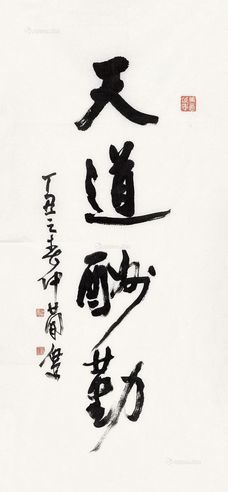 天道酬勤
丁丑之春仲葡叟